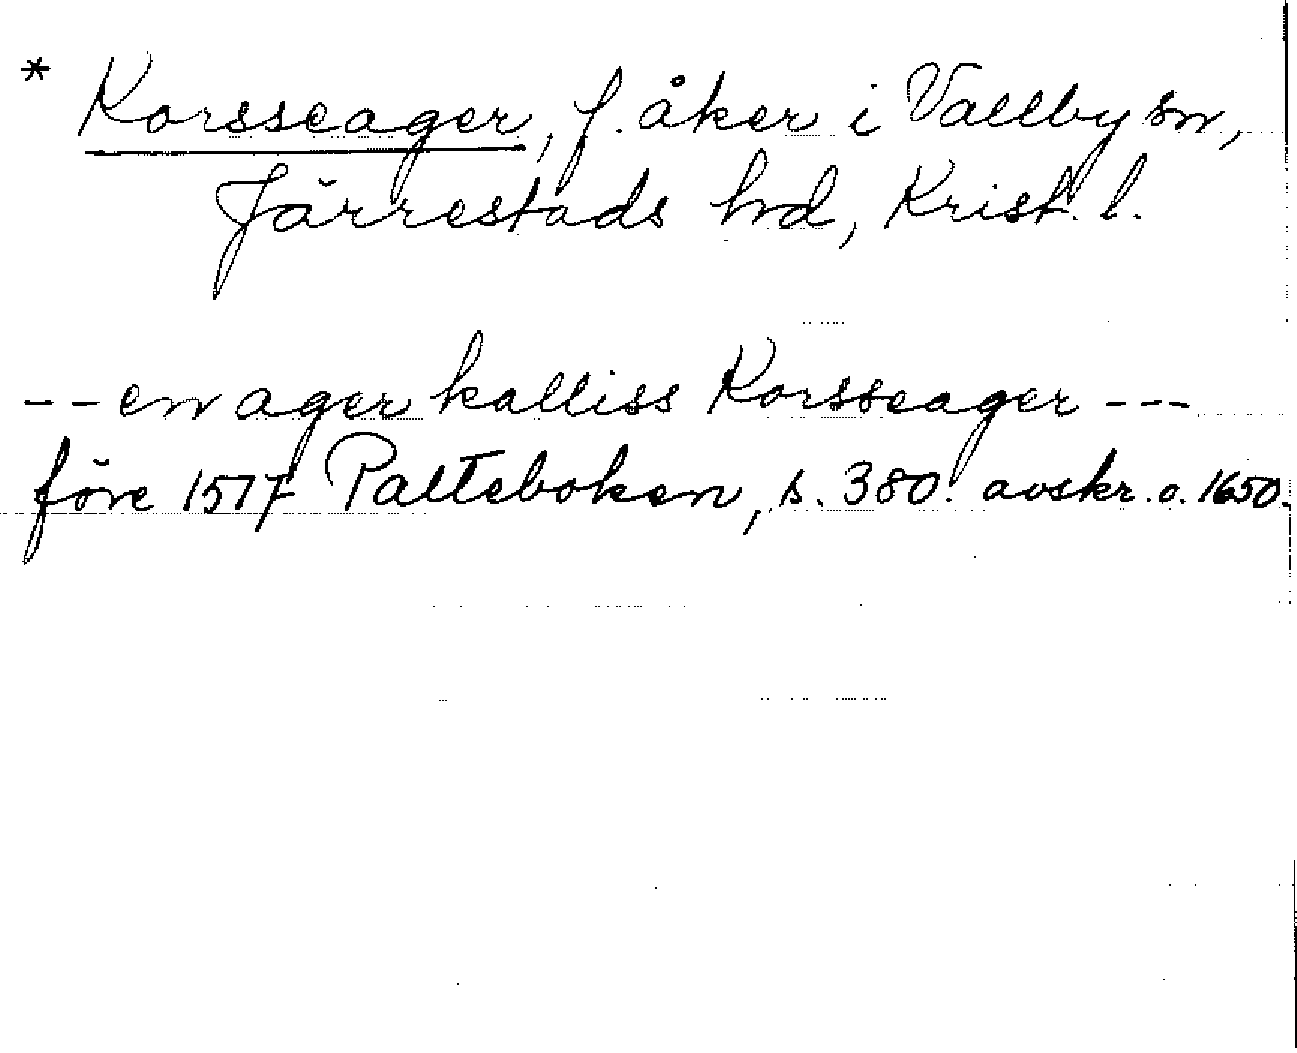 * Korsseager, f. åker i Vallby sn,
Järrestads hd, Krist. l.
-- en ager kalliss Korsseager ---
före 1517 Palteboken, s. 380. avskr. o. 1650.